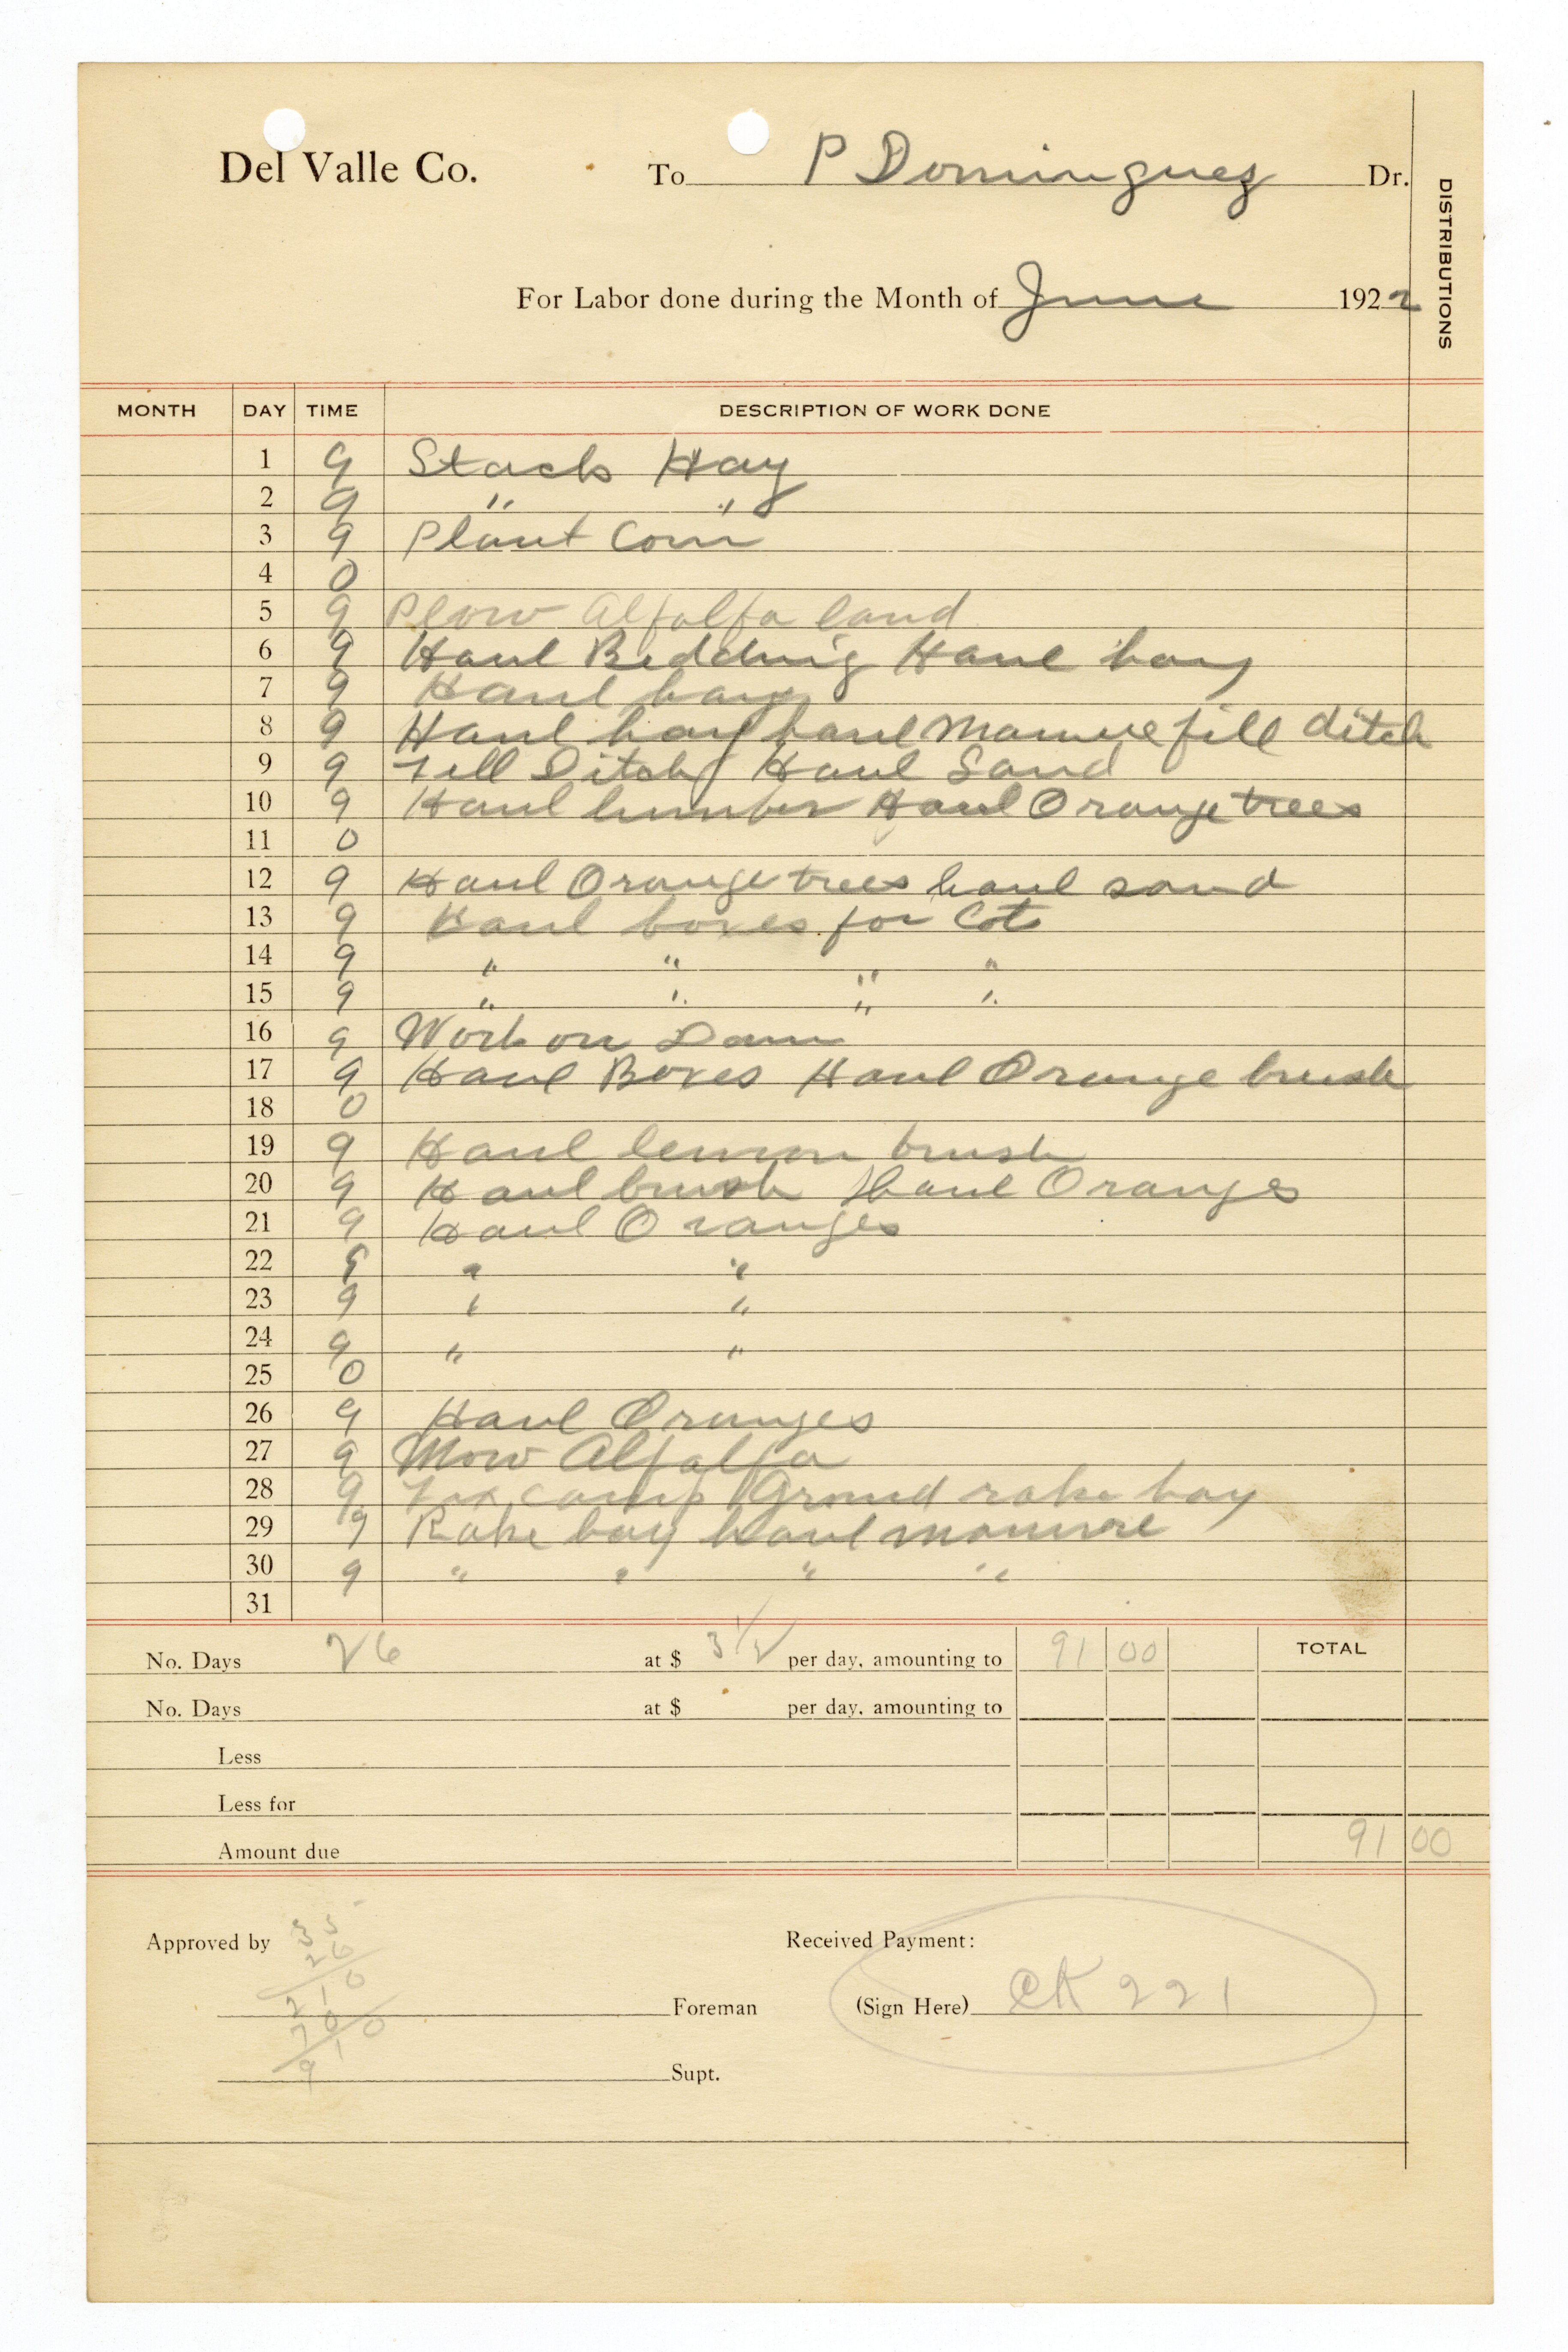 Del Valle Co. To P Dominguez Dr.
DISTRIBUTIONS
For Labor done during the Month of June 1922
MONTH DAY TIME DESCRIPTION OF WORK DONE
1 9 Stack Hay
2 9 " "
3 9 Plant Corn
4 0
5 9 Plow Alfalfa land
6 9 Haul Bedding Haul hay
7 9 Haul hay
8 9 Haul hay haul Manure fill ditch
9 9 Fill Ditch Haul Sand
10 9 Haul lumber Haul Orange trees
11 0
12 9 Haul Orange trees haul sand
13 9 Haul boxes for Cots
14 9 " " " "
15 9 " " " "
16 9 Work on Dam
17 9 Haul Boxes Haul Orange brush
18 0
19 9 Haul lemon brush
20 9 Haul brush Haul Oranges
21 9 Haul Oranges
22 9 " "
23 9 " "
24 9 " "
25 0
26 9 Haul Oranges
27 9 Mow Alfalfa
28 9 Fix camp Ground rake hay
29 9 Rake hay haul manure
30 9 " " " "
31
No. Days 26 at $ 3 1/2 per day, amounting to 91 00 TOTAL
No. Days at $ per day, amounting to
Less
Less for
Amount due 91 00
Approved by Received Payment:
35
26
210
70
910
Foreman (Sign Here) CK 221
Supt.